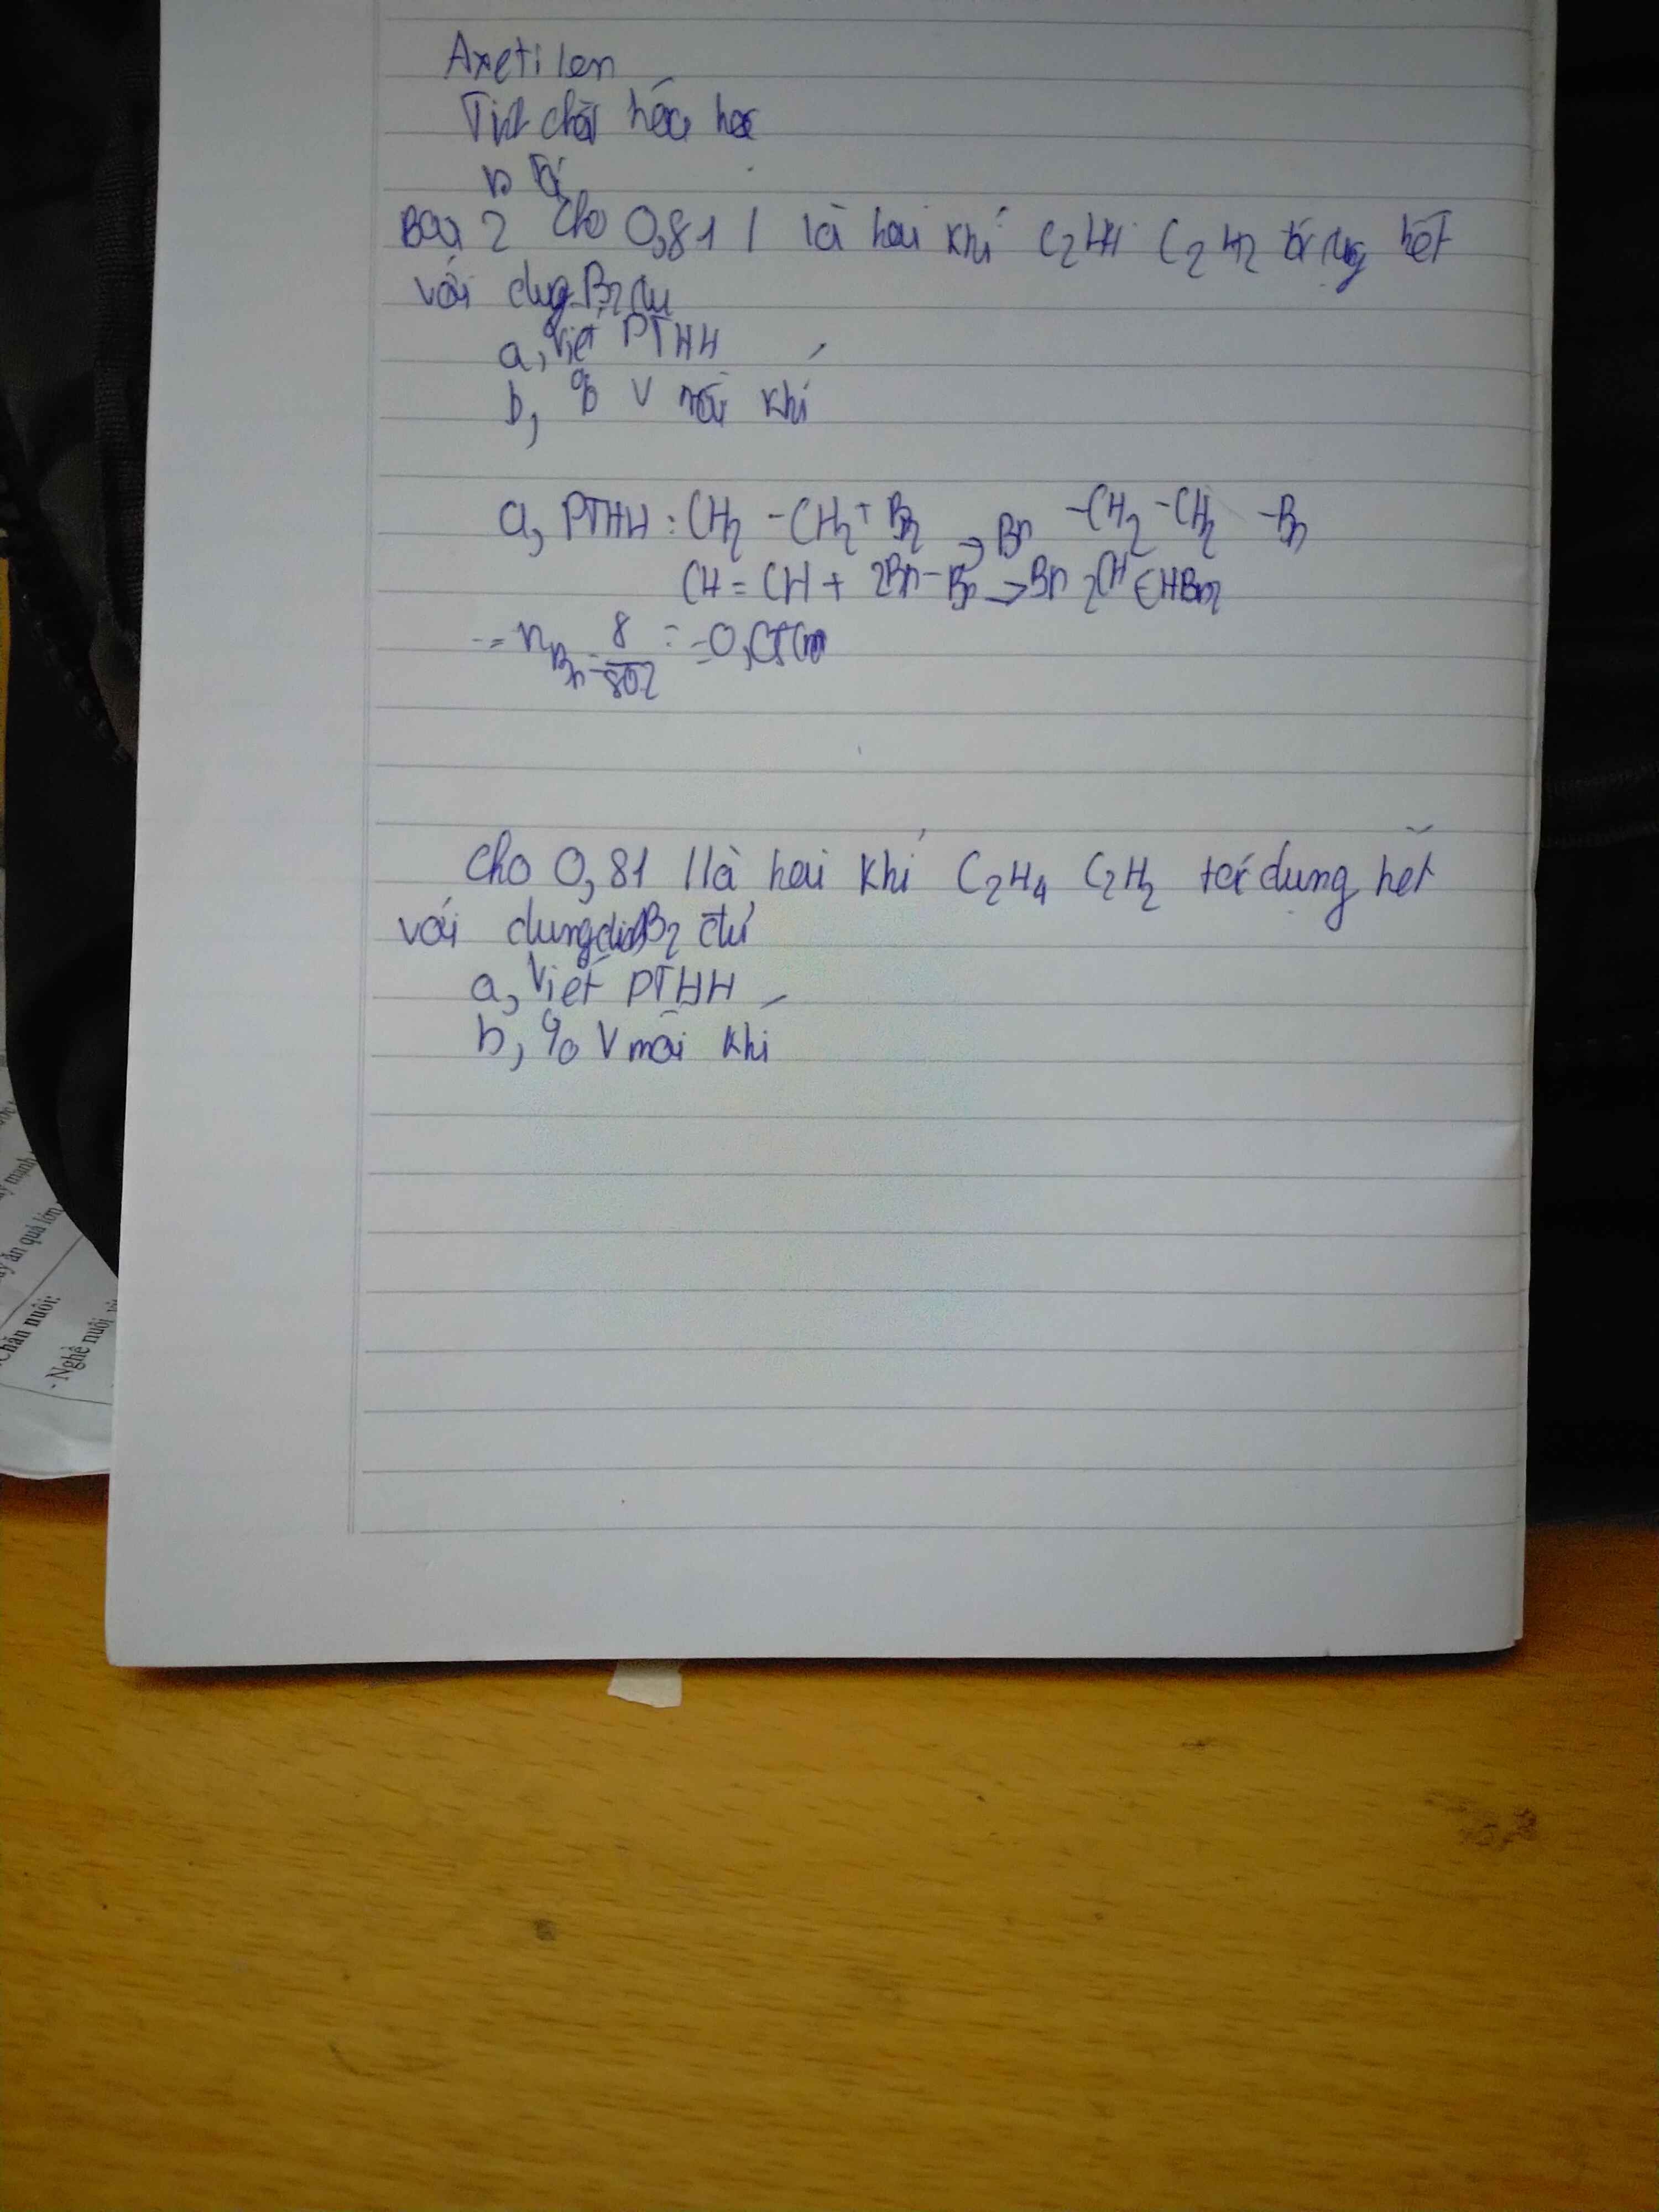 Axetilen
Tính chất hóa học
Bài 2 Cho 0,81 l là hai khí C2H4 C2H2 hết
với dung Br2 dư
a, Viết PTHH
b, % V mỗi khí
a, PTHH : CH2 - CH2 + Br2 → Br - CH2 - CH2 - Br
CH = CH + 2Br - Br → Br 2CH CHBr2
n Br = 8
802
Cho 0,81 l là hai khí C2H4 C2H2 tác dung hết
với dung dịch Br2 dư
a, Viết PTHH
b, % V mỗi khí
ăn quả lớn
Chăn nuôi:
- Nghề nuôi